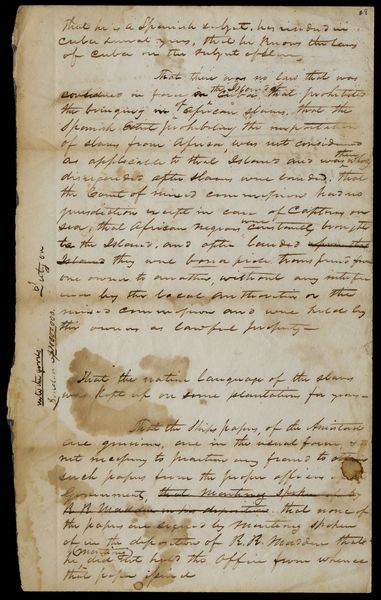 that he is a Spanish subject, has resided in
Cuba several years, that he knows the laws
of Cuba on the subject of slavery
That there was no law that was
considered in force on the Island of Cuba that prohibited
the bringing in of African slaves, that the
Spanish prohibiting the importation
of slaves from Africa was not considered
as applicable to that Island and was
disregarded after slaves were landed, that
the Court of mixed commission had no
jurisdiction except in case of Captures on
sea, that African negroes constantly brought
to the Island, and after landed upon the
Island they were bona fide transferred from
one owner to another, without any interfer
ence by the local authorities or the
mixed commission and were held by
the owners as lawful property—
That the native language of the slaves
was kept up on some plantation for years—
That the Ships papers, of the Amistad
are genuine, are in the usual form,
not necessary to practice any fraud to obtain
such papers from the proper officers of
Government, that Martinez spoken of by
R R Madden in his deposition that none of
the papers are signed by Martinez spoken
of in the deposition of R. R. Madden that
he Martinez did not hold the Office from whence
that paper issued